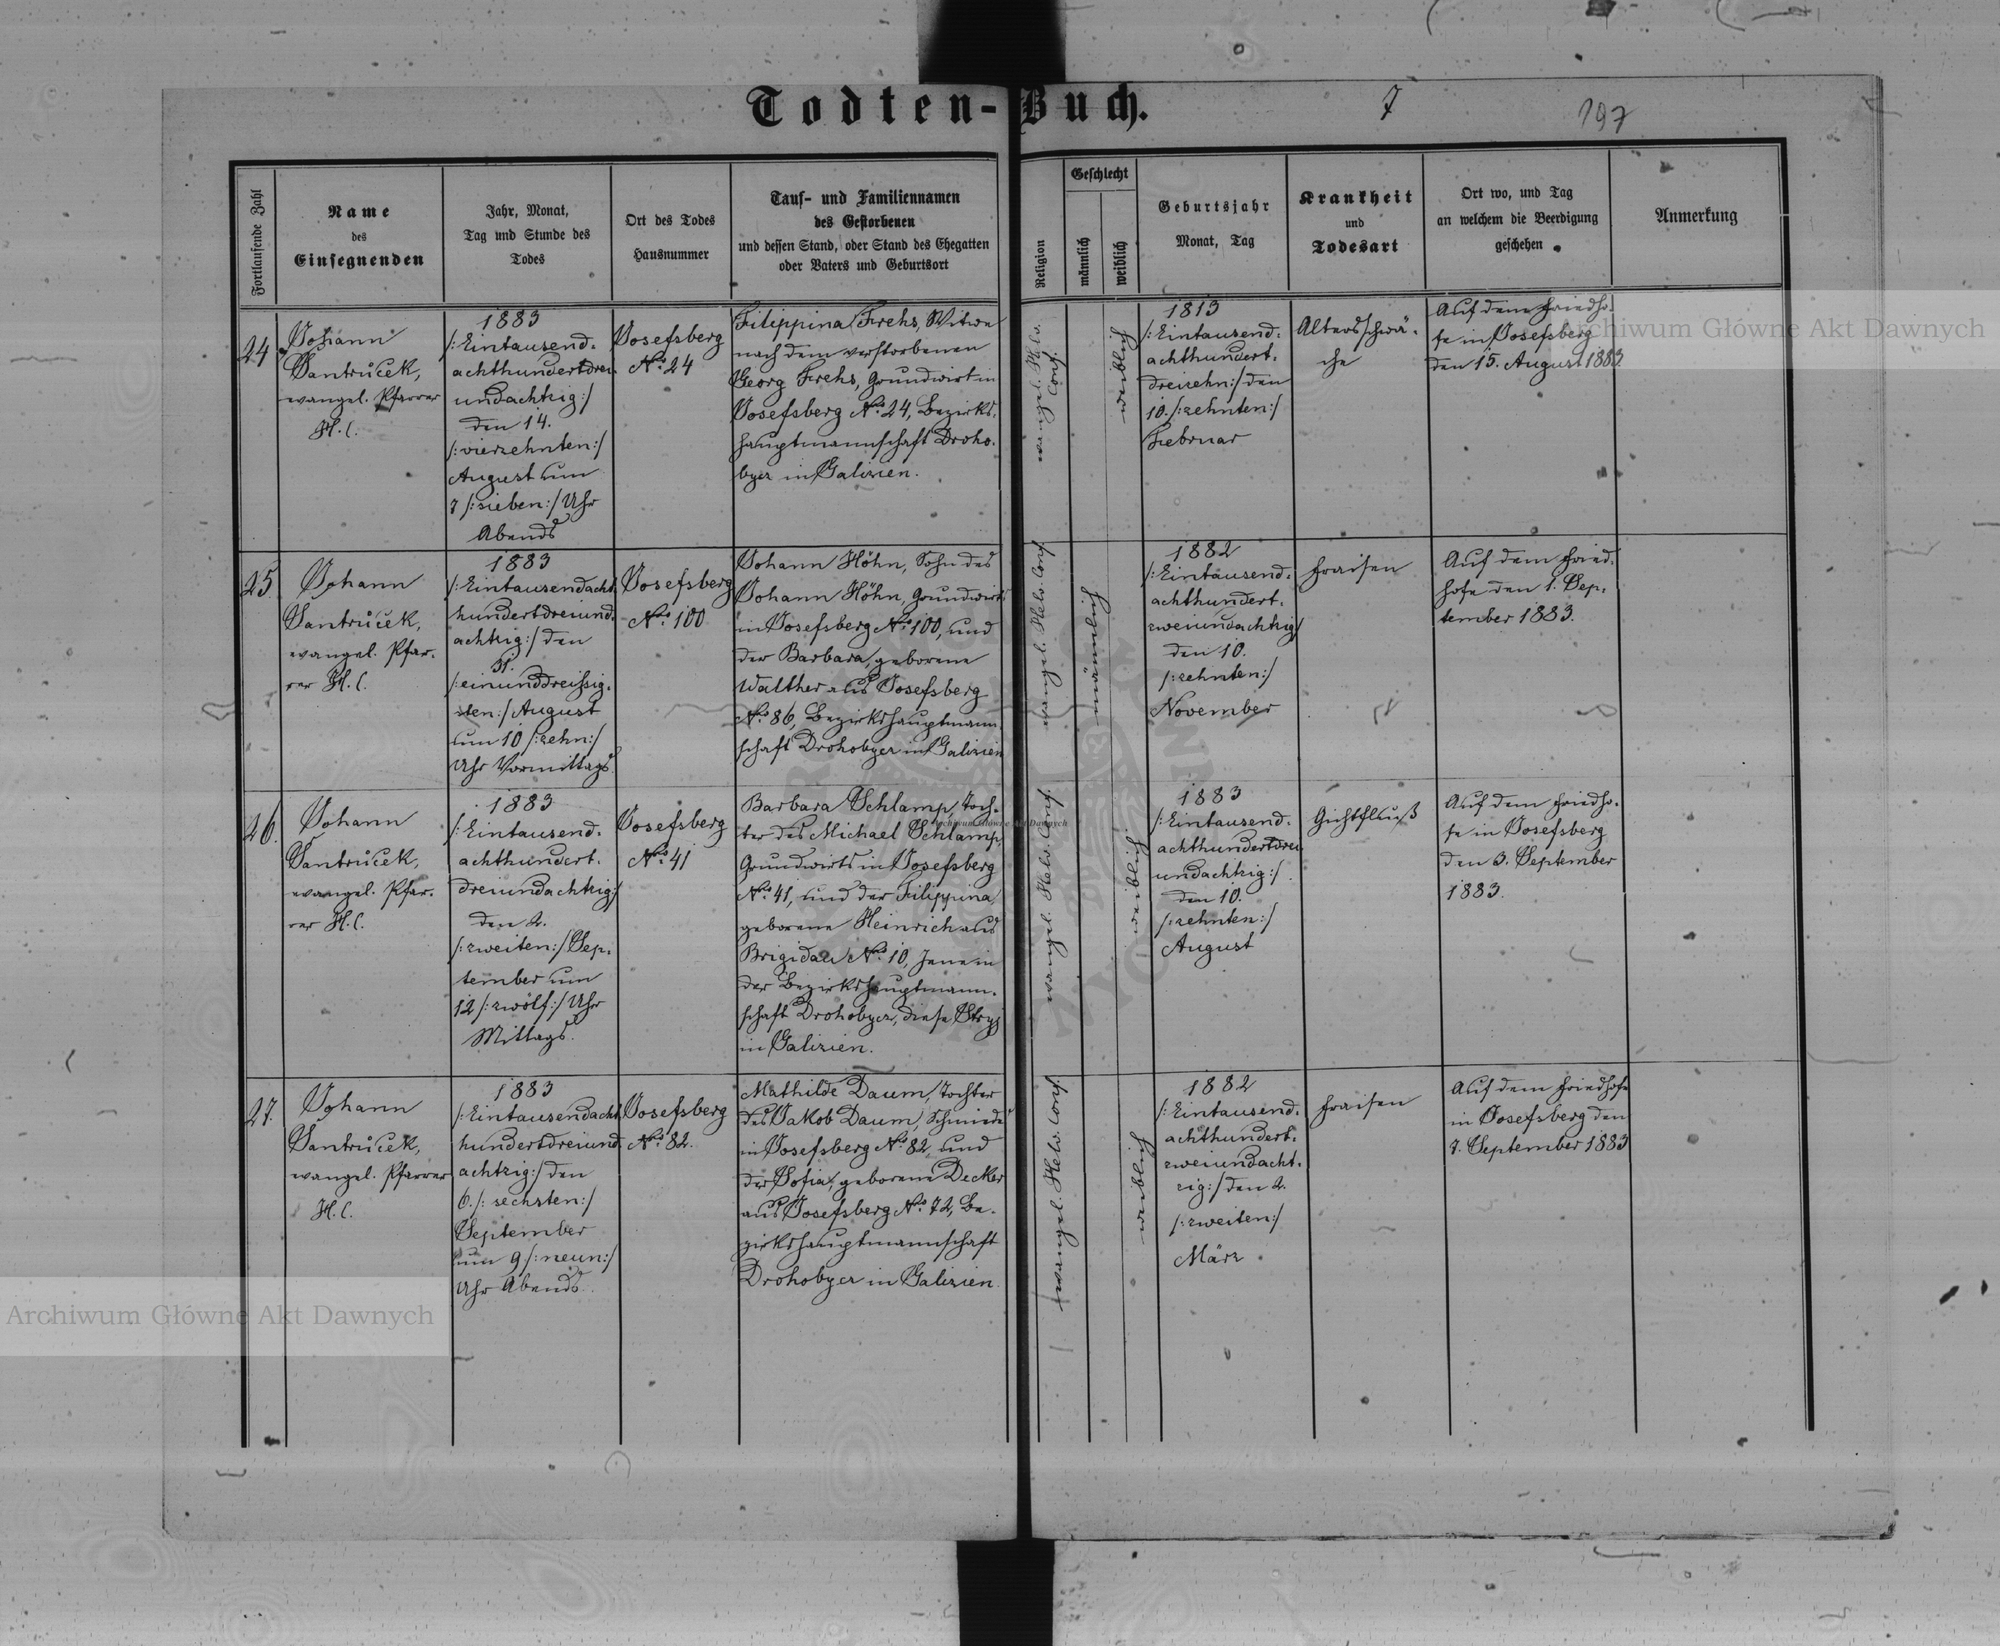 Todten-Buch.
7
197
Fortlaufende Zahl
Name
des
Einsegnenden
Jahr, Monat,
Tag und Stunde des
Todes
Ort des Todes
Hausnummer
Tauf- und Familiennamen
des Gestorbenen
und dessen Stand, oder Stand des Ehegatten
oder Vaters und Geburtsort
Religion
Geschlecht
männlich
weiblich
Geburtsjahr
Monat, Tag
Krankheit
und
Todesart
Ort wo, und Tag
an welchem die Beerdigung
geschehen
Anmerkung
24
Johann
Jantrůček,
evangel. Pfarrer
H.C.
1883
/:Eintausend-
achthundertdrei-
undachtzig:/
den 14.
/:vierzehnten:/
August um
7 /:sieben:/ Uhr
Abends
Josefsberg
No. 24
Filippina Frehs, Witwe
nach dem verstorbenen
Georg Frehs, Grundwirt in
Josefsberg No. 24, Bezirks-
hauptmannschaft Droho-
bycz in Galizien.
evangel. Helv.
Conf.
weiblich
1813
/:Eintausend-
achthundert-
dreizehn:/ den
10. /:zehnten:/
Februar
Altersschwä-
che
Auf dem Friedho-
fe in Josefsberg
den 15. August 1883.
25.
Johann
Jantrůček,
evangel. Pfar-
rer H.C.
1883
/:Eintausendacht-
hundertdreiund-
achtzig:/ den
31.
/:einunddreissig-
sten:/ August
um 10 /:zehn:/
Uhr Vormittags
Josefsberg
No. 100
Johann Höhn, Sohn des
Johann Höhn, Grundwirts
in Josefsberg No. 100, und
der Barbara, geborene
Walther aus Josefsberg
No. 86, Bezirkshauptmann-
schaft Drohobycz in Galizien
evangel. Helv. Conf.
männlich
1882
/:Eintausend-
achthundert-
zweiundachtzig:/
den 10.
/:zehnten:/
November
Fraisen
Auf dem Fried-
hofe den 1. Sep-
tember 1883.
26.
Johann
Jantrůček,
evangel. Pfar-
rer H.C.
1883
/:Eintausend-
achthundert-
dreiundachtzig:/
den 2.
/:zweiten:/ Sep-
tember um
12 /:zwölf:/ Uhr
Mittags.
Josefsberg
No. 41
Barbara Schlamp, Toch-
ter des Michael Schlamp,
Grundwirts in Josefsberg
No. 41, und der Filippina,
geborene Heinrich aus
Brigidau No. 10, Jene in
der Bezirkshauptmann-
schaft Drohobycz, diese Stryj
in Galizien.
evangel. Helv. Conf.
weiblich
1883
/:Eintausend-
achthundertdrei-
undachtzig:/
den 10.
/:zehnten:/
August
Gichtfluß
Auf dem Friedho-
fe in Josefsberg
den 3. September
1883.
27.
Johann
Jantrůček,
evangel. Pfarrer
H.C.
1883
/:Eintausendacht-
hundertdreiund-
achtzig:/ den
6. /:sechsten:/
September
um 9 /:neun:/
Uhr Abends.
Josefsberg
No. 82.
Mathilde Daum, Tochter
des Jakob Daum, Schmieds
in Josefsberg No. 82, und
der Sofia, geborene Decker
aus Josefsberg No. 72, Be-
zirkshauptmannschaft
Drohobycz in Galizien.
evangel. Helv. Conf.
weiblich
1882
/:Eintausend-
achthundert-
zweiundacht-
zig:/ den 2.
/:zweiten:/
März
Fraisen
Auf dem Friedhofe
in Josefsberg den
7. September 1883
Archiwum Główne Akt Dawnych
Archiwum Główne Akt Dawnych
Archiwum Główne Akt Dawnych